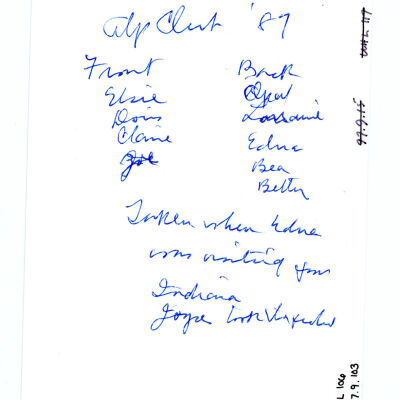 Alp Club '87
Front Back
Elsie Opal
Doris Lorraine
Claire Edna
Joe Bea
Betty
Taken when Edna
was visiting from
Indiana
Joyce took the
99.9.15
L 106
7.9.103